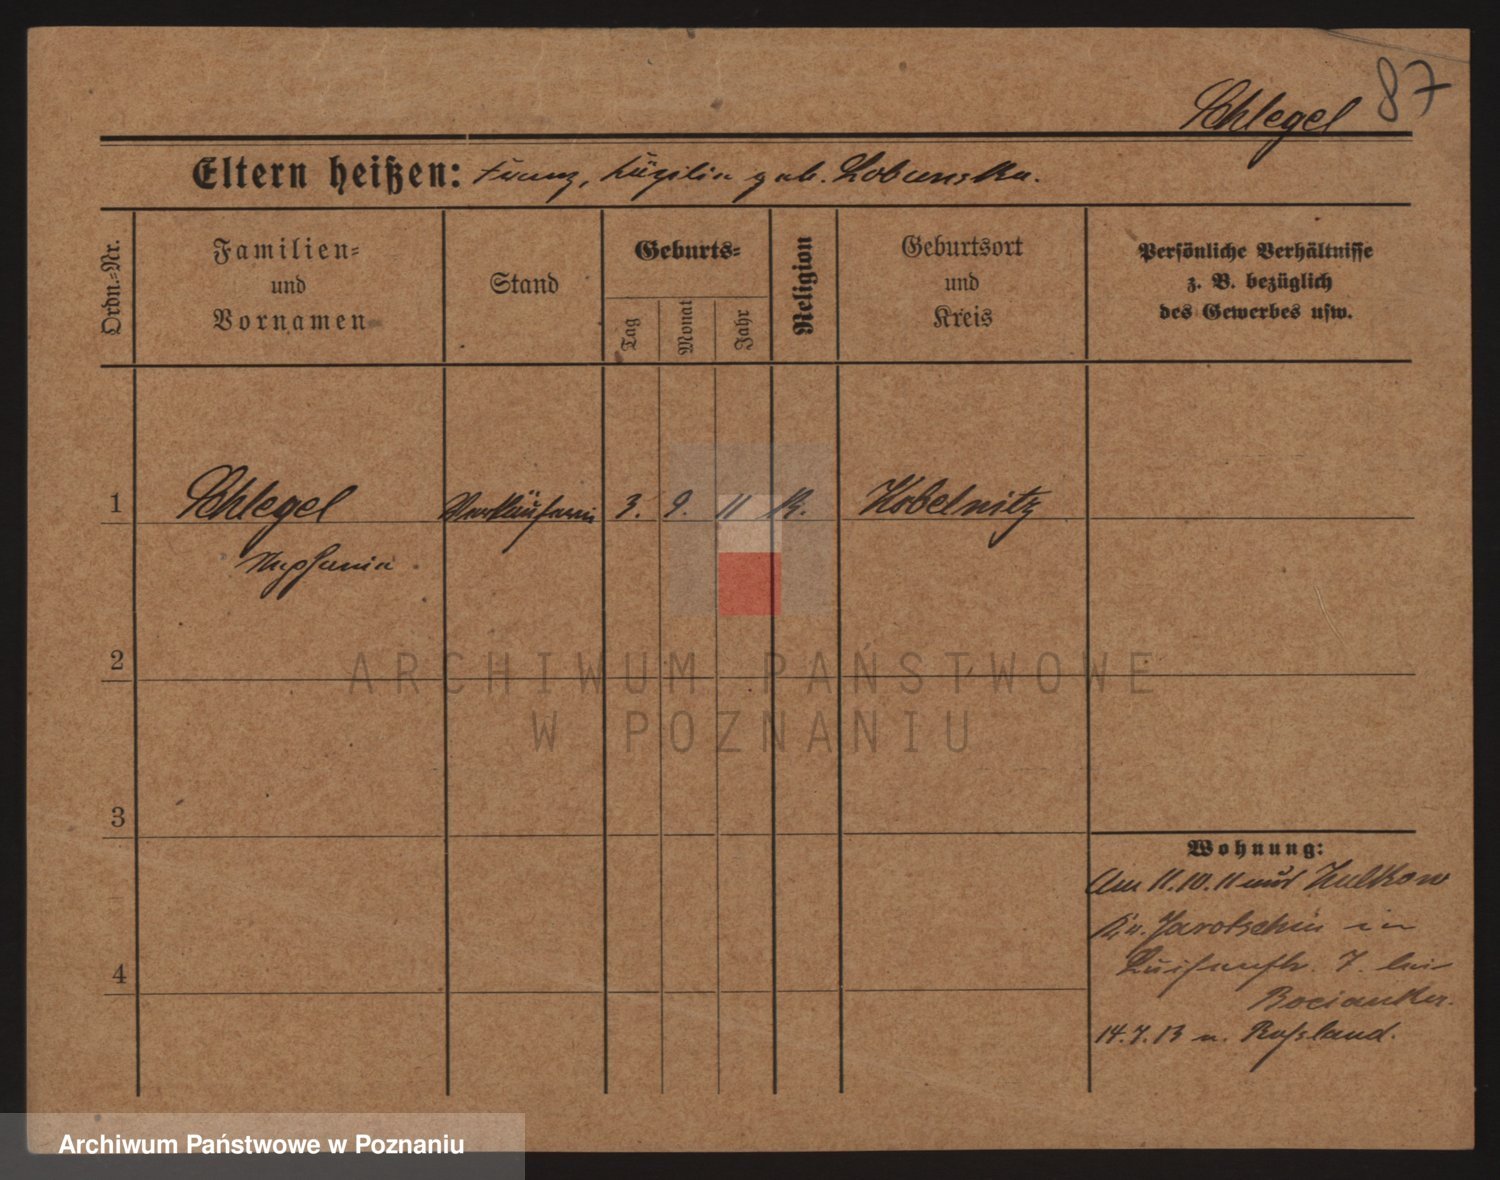 87
Schlegel
Eltern heißen: Franz, Cäzilia geb. Lobunska.
Ordn.-Nr.
Familien-
und
Vornamen
Stand
Geburts-
Tag
Monat
Jahr
Religion
Geburtsort
und
Kreis
Persönliche Verhältnisse
z. B. bezüglich
des Gewerbes usw.
1
Schlegel
Verkäuferin
3.
9.
11
K.
Kobelnitz
Stephania
2
ARCHIWUM PAŃSTWOWE
W POZNANIU
3
Wohnung:
Am 11.10.11 aus Zulkow
Kr. Jarotschin in
Luisenstr. 7. bei
Bocianker.
4
14.7.13 n. Russland.
Archiwum Państwowe w Poznaniu